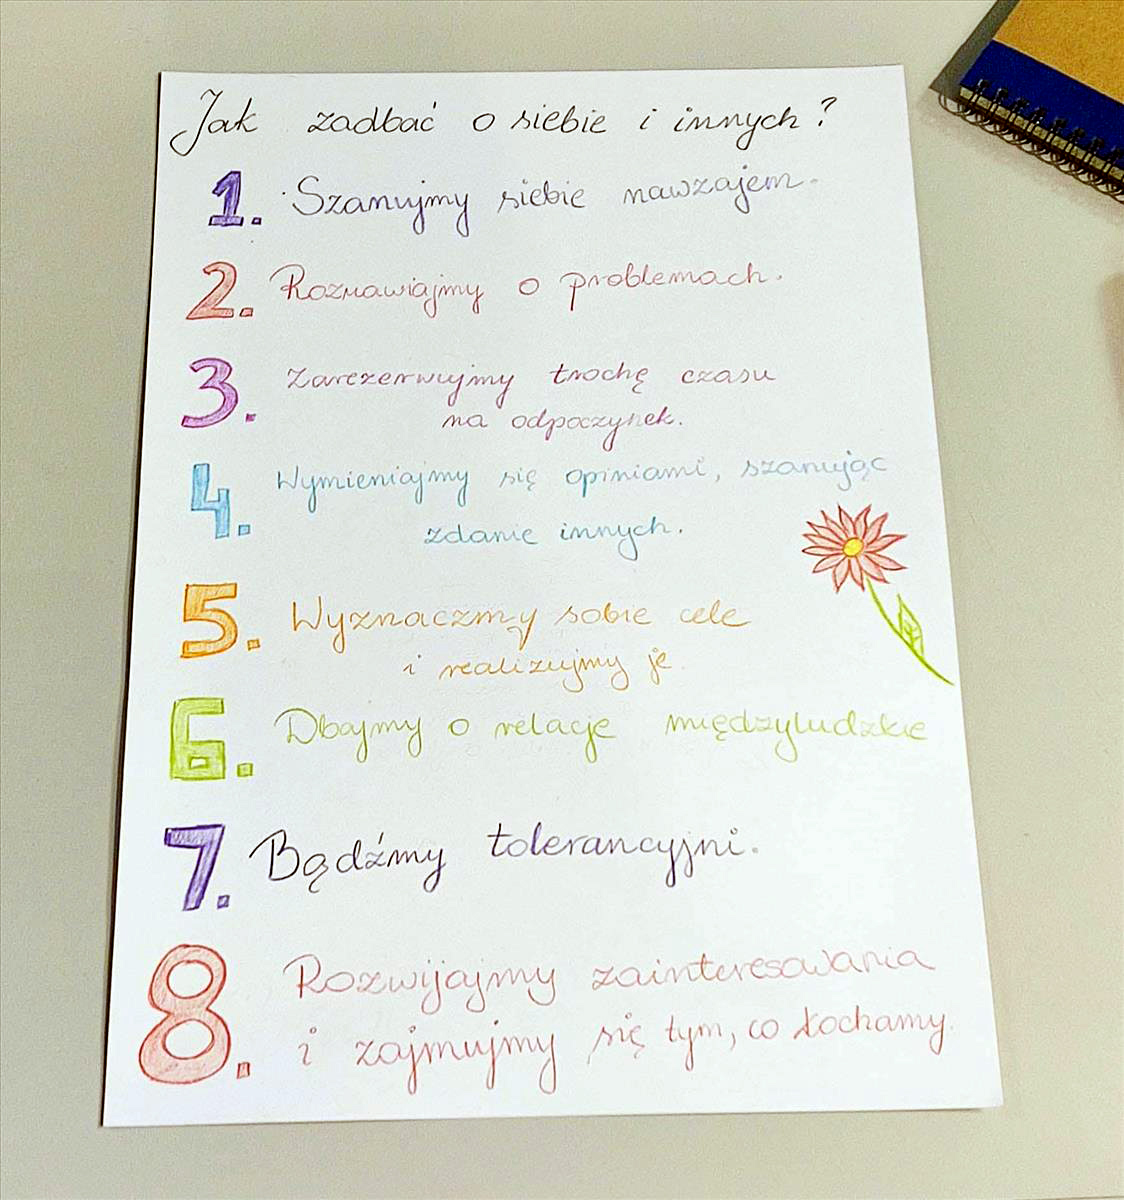 Jak zadbać o siebie i innych?
1. Szanujmy siebie nawzajem.
2. Rozmawiajmy o problemach.
3. Zarezerwujmy trochę czasu
na odpoczynek.
4. Wymieniajmy się opiniami, szanując
zdanie innych.
5. Wyznaczmy sobie cele
i realizujmy je.
6. Dbajmy o relacje międzyludzkie
7. Bądźmy tolerancyjni.
8. Rozwijajmy zainteresowania
i zajmujmy się tym, co kochamy.